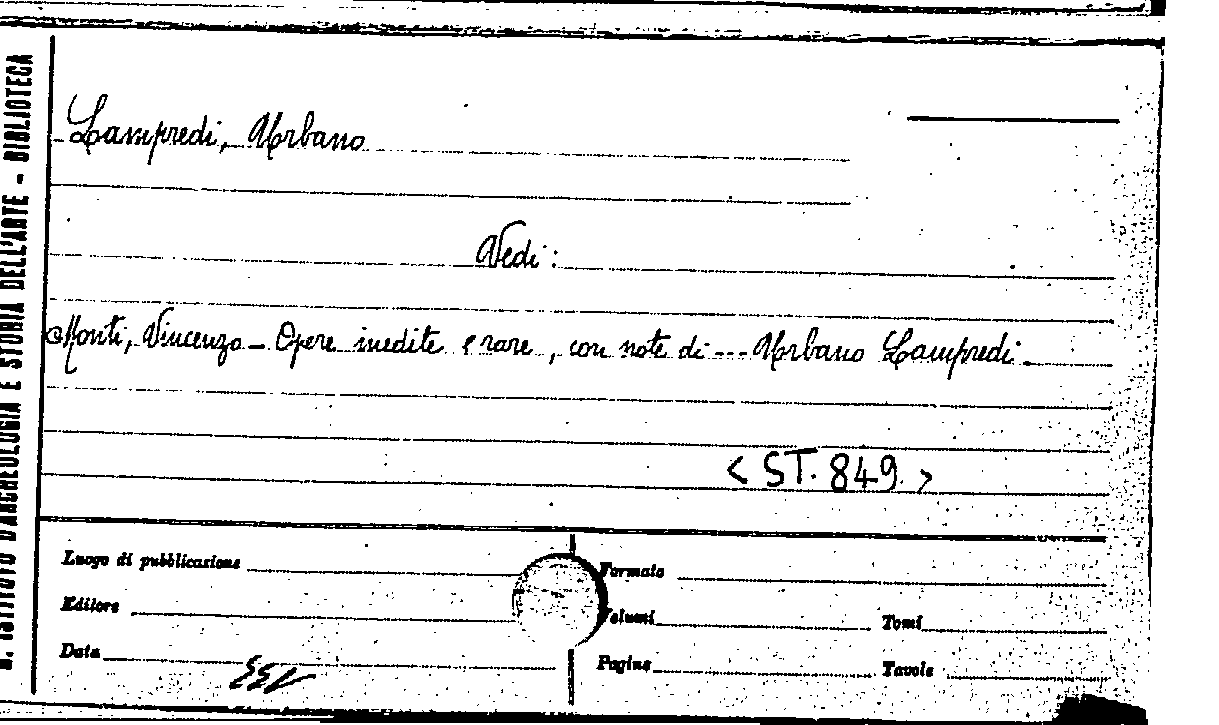 R. ISTITUTO D'ARCHEOLOGIA E STORIA DELL'ARTE - BIBLIOTECA
Lampredi, Urbano
Vedi :
Monti, Vincenzo - Opere inedite e rare, con note di --- Urbano Lampredi
< ST. 849. >
Luogo di pubblicazione
Formato
Editore
Volumi
Tomi
Data
Pagine
Tavole